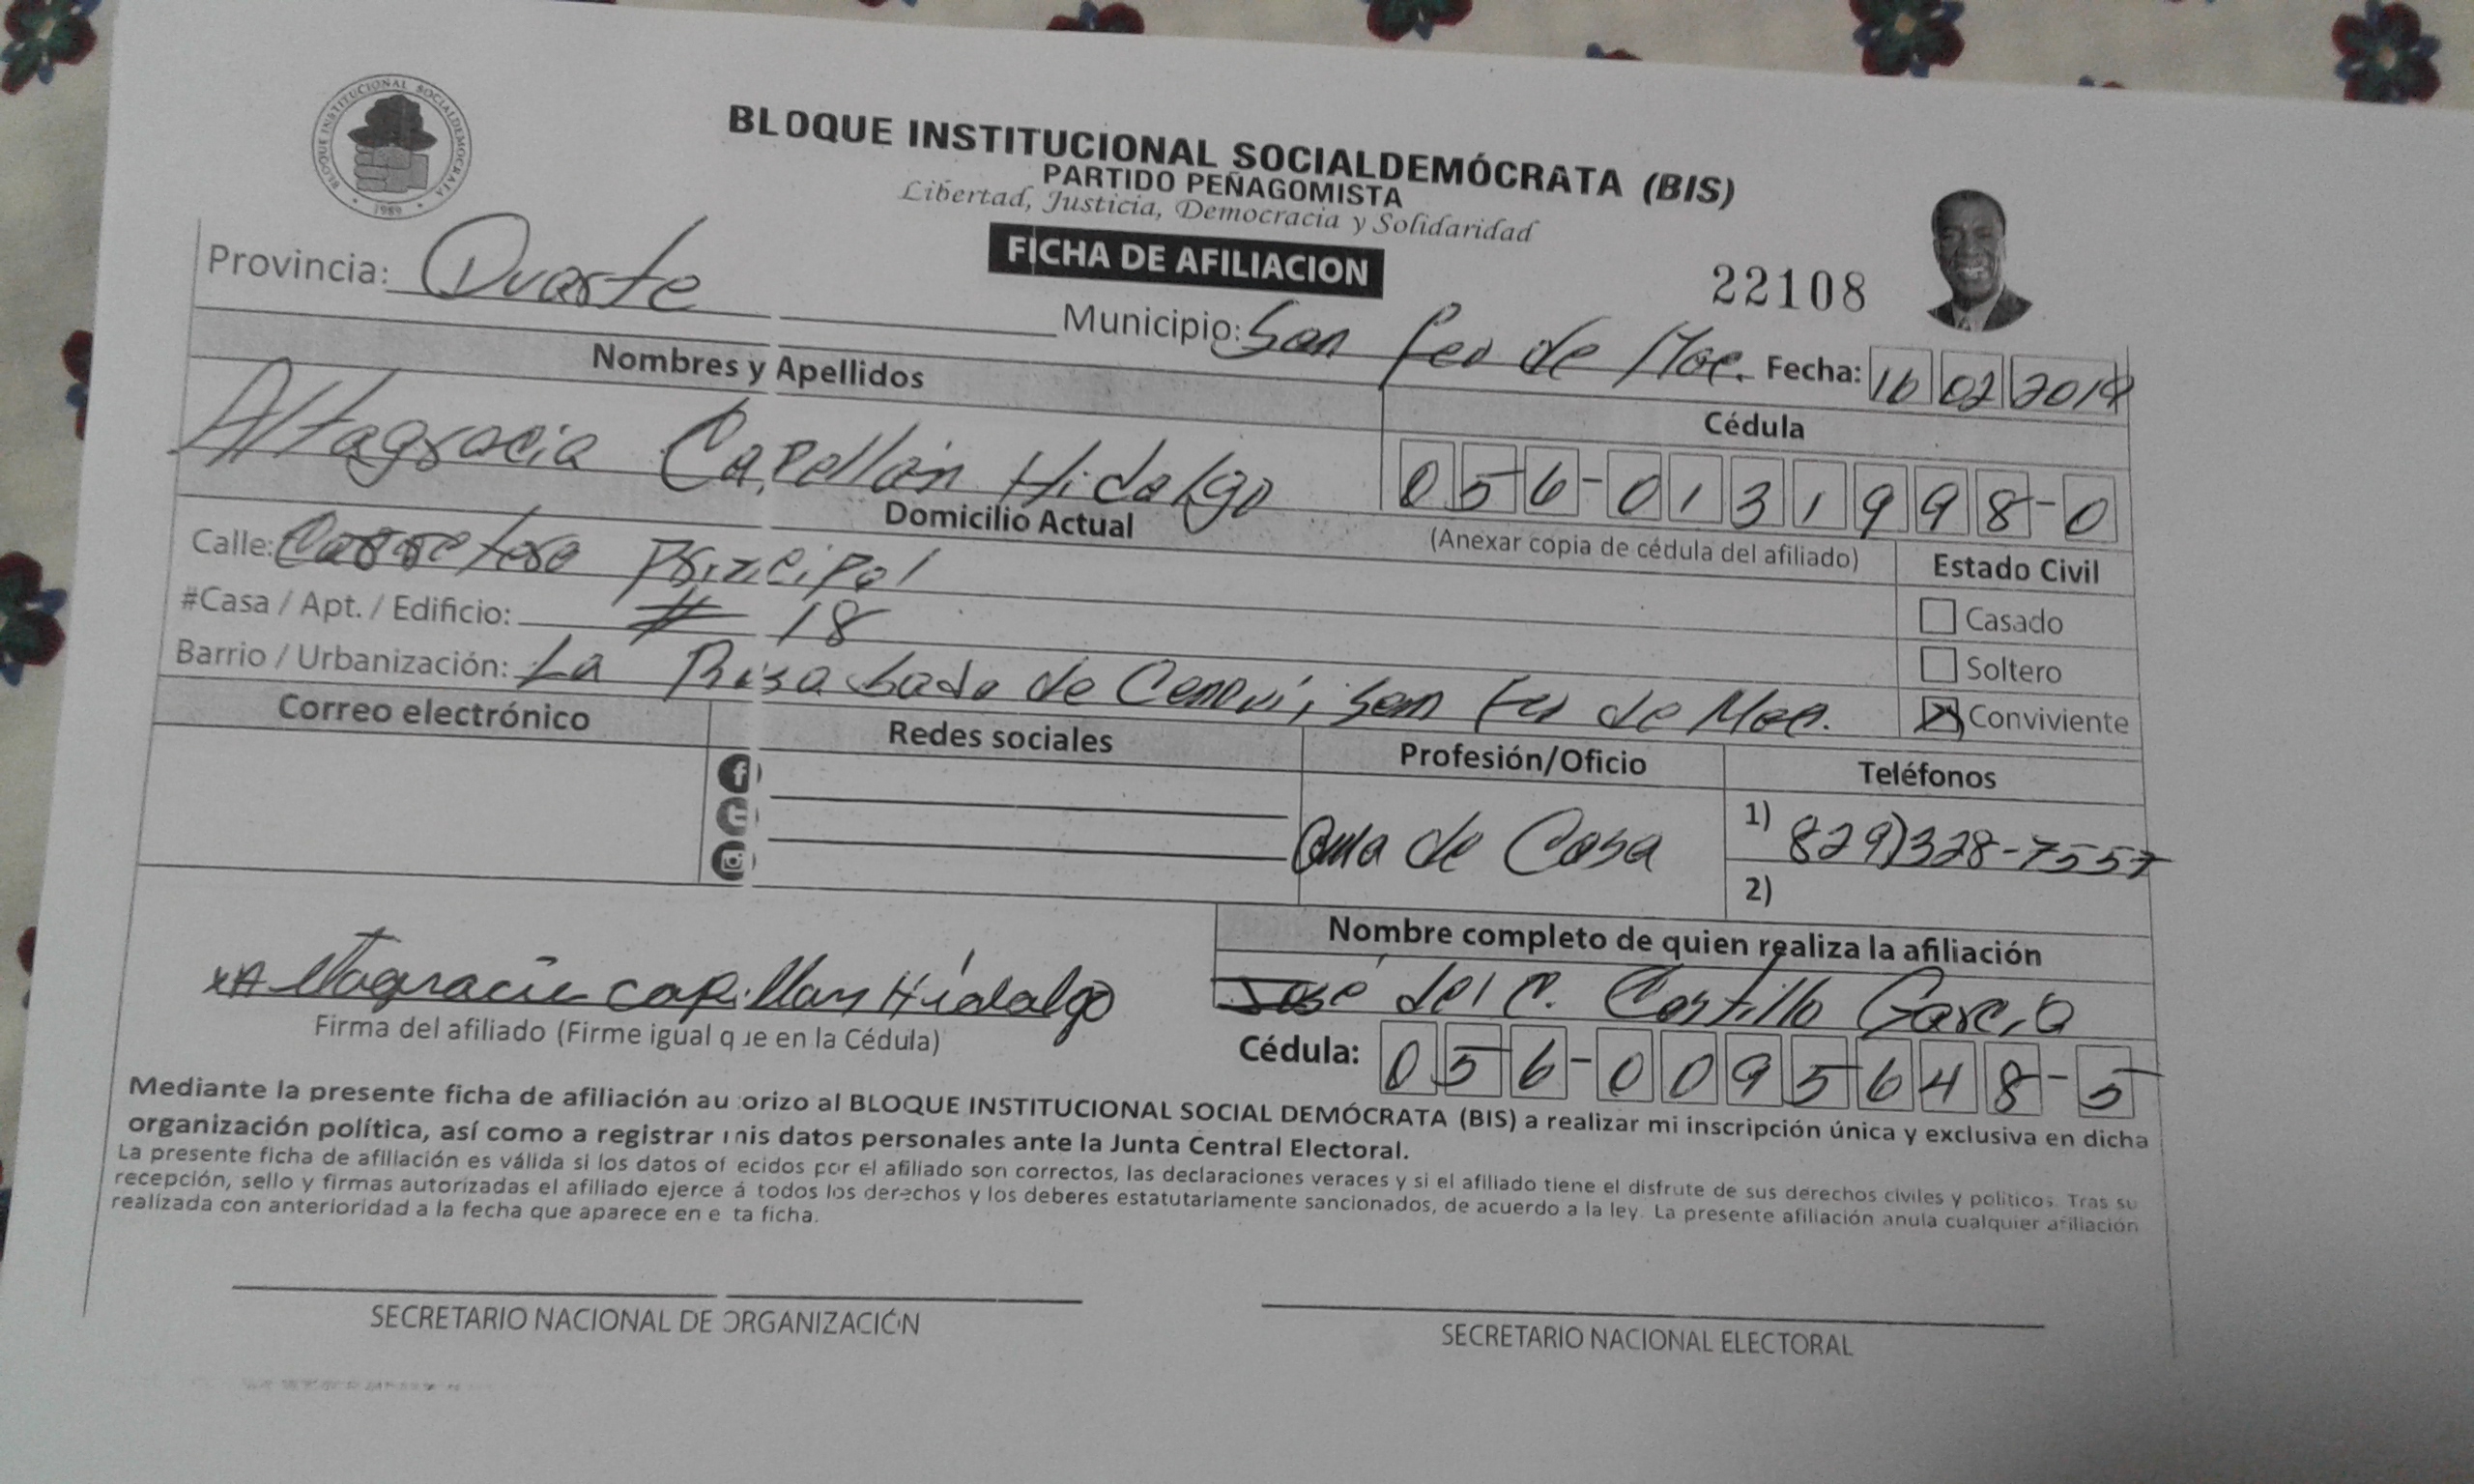 BLOQUE INSTITUCIONAL SOCIALDEMOCRATA
1989
BLOQUE INSTITUCIONAL SOCIALDEMÓCRATA (BIS)
PARTIDO PEÑAGOMISTA
Libertad, Justicia, Democracia y Solidaridad
FICHA DE AFILIACION
22108
Provincia: Duarte
Municipio: San fco de Mac. Fecha: 16 02 2019
Nombres y Apellidos
Cédula
Altagracia Capellán Hidalgo
056-0131998-0
(Anexar copia de cédula del afiliado)
Domicilio Actual
Estado Civil
Calle: Carretera Principal
Casado
#Casa / Apt. / Edificio: # 18
Soltero
Barrio / Urbanización: La de Cenoví, San Fco de Mac.
Conviviente
Correo electrónico
Redes sociales
Profesión/Oficio
Teléfonos
Ama de Casa
1) 829)328-7557
2)
Nombre completo de quien realiza la afiliación
José del C. Castillo García
xAltagracia capillan Hidalgo
Firma del afiliado (Firme igual q ue en la Cédula)
Cédula: 056-0095648-5
Mediante la presente ficha de afiliación au orizo al BLOQUE INSTITUCIONAL SOCIAL DEMÓCRATA (BIS) a realizar mi inscripción única y exclusiva en dicha
organización política, así como a registrar mis datos personales ante la Junta Central Electoral.
La presente ficha de afiliación es válida si los datos of ecidos por el afiliado son correctos, las declaraciones veraces y si el afiliado tiene el disfrute de sus derechos civiles y politicos. Tras su
recepción, sello y firmas autorizadas el afiliado ejerce á todos los derechos y los deberes estatutariamente sancionados, de acuerdo a la ley. La presente afiliación anula cualquier afiliación
realizada con anterioridad a la fecha que aparece en e ta ficha.
SECRETARIO NACIONAL DE ORGANIZACIÓN
SECRETARIO NACIONAL ELECTORAL